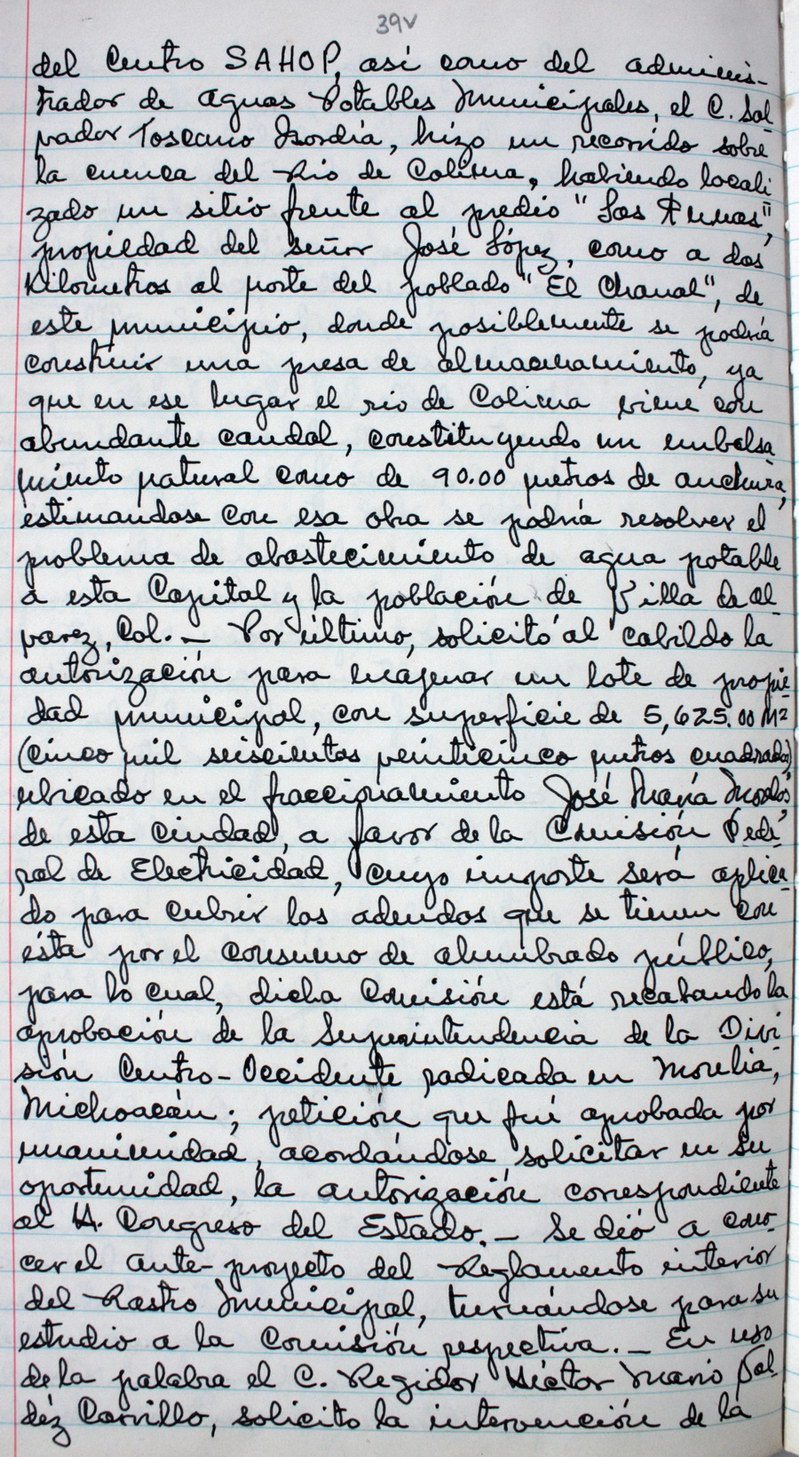 39v
del Centro SAHOP, así como del adminis-
trador de Aguas Potables Municipales, el C. Sal-
vador Toscano Isordia, hizo un recorrido sobre
la cuenca del Río de Colima, habiendo locali
zado un sitio frente al predio "Las Tunas",
propiedad del señor José López, como a dos
Kilometros al norte del poblado "El Chanal", de
este municipio, donde posiblemente se podría
construir una presa de almacenamiento, ya
que en ese lugar el río de Colima viene con
abundante caudal, constituyendo un embalsa
miento natural como de 90.00 metros de anchura,
estimandose con esa obra se podría resolver el
problema de abastecimiento de agua potable
a esta Capital y la población de Villa de Al
varez, Col. — Por último, solicitó al cabildo la
autorización para enajenar un lote de propie-
dad municipal, con superficie de 5,625.00 M2
(cinco mil seiscientos veinticinco metros cuadrados)
ubicado en el fraccionamiento José María Morelos
de esta ciudad, a favor de la Comisión Fede-
ral de Electricidad, cuyo importe será aplica-
do para cubrir los adeudos que se tienen con
ésta por el consumo de alumbrado público,
para lo cual, dicha Comisión está recabando la
aprobación de la Superintendencia de la Divi
sión Centro-Occidente radicada en Morelia,
Michoacán; petición que fué aprobada por
unanimidad, acordándose solicitar en su
oportunidad, la autorización correspondiente
al H. Congreso del Estado. — Se dió a cono-
cer el ante-proyecto del Reglamento interior
del Rastro Municipal, turnándose para su
estudio a la Comisión respectiva. — En uso
de la palabra el C. Regidor Héctor Mario Val
déz Carrillo, solicito la intervención de la